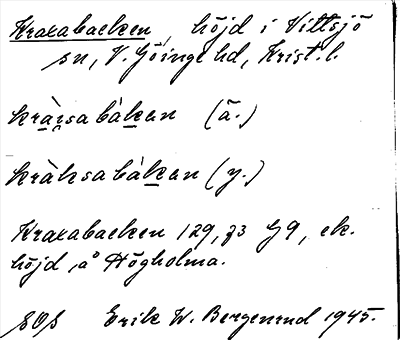 Kraxabacken, höjd i Vittsjö
sn, V. Göinge hd, Krist. l.
kràxsabàkan (ä.)
kràksabàkan (y.)
Kraxabacken 129,73 G9, ek.
höjd å Högholma.
SOS Erik W. Bergenrud 1945.